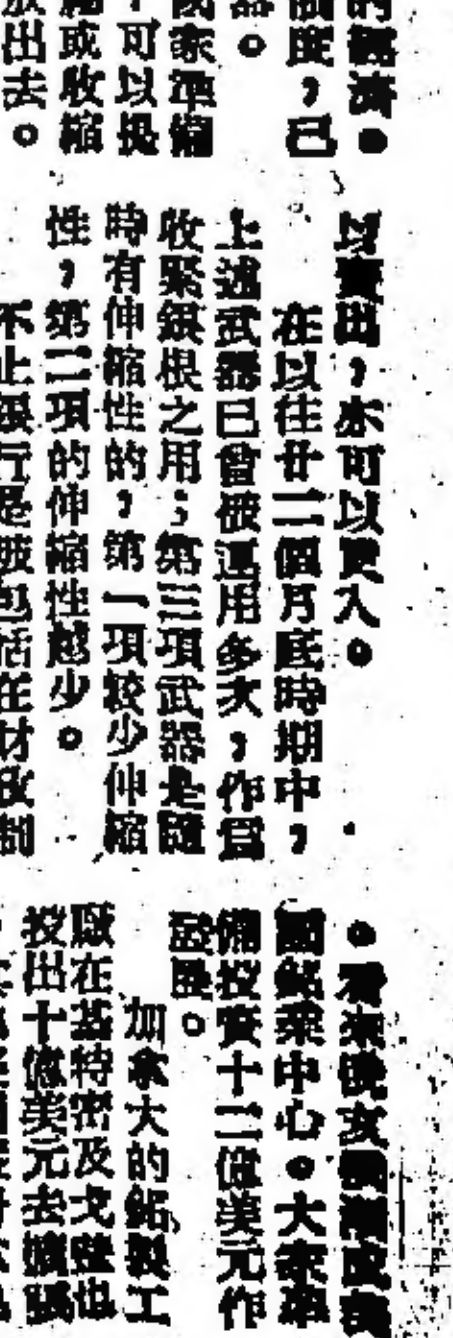 的經濟。
制度，已
器。
國家準備
，可以提
縮或收縮
放出去。
以賣出，亦可以買入。
在以往廿二個月底時期中，
上述武器已曾被運用多次，作爲
收緊銀根之用；第三項武器是隨
時有伸縮性的，第一項較少伸縮
性，第二項的伸縮性越少。
不止銀行是被包括在財政制
。看來
國鋁業中心。大家準
備投資十二億美元作
發展。
加拿大的鋁製工
廠在基特密及戈登也
投出十億美元去擴